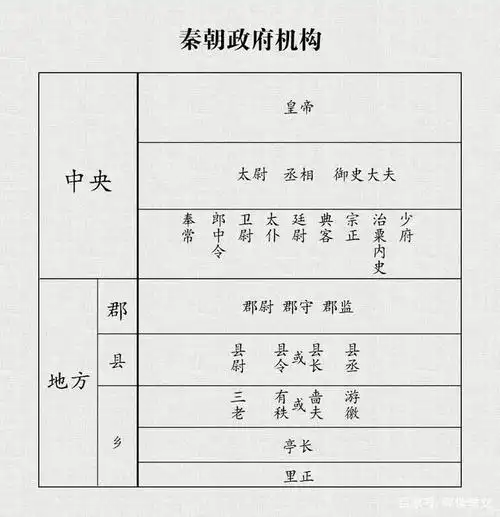 秦朝政府机构
中央
皇帝
太尉 丞相 御史大夫
奉常 郎中令 卫尉 太仆 廷尉 典客 宗正 治粟内史 少府
地方
郡
郡尉 郡守 郡监
县
县尉 县令或县长 县丞
乡
三老 有秩或啬夫 游徼
亭长
里正